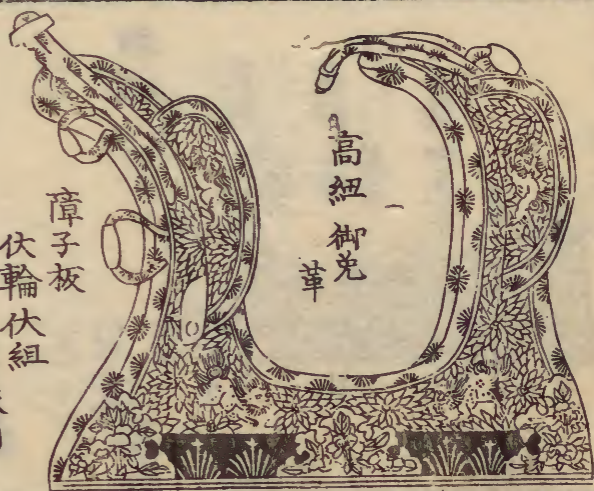 高紐 御免
革
障子板
伏輪伏組